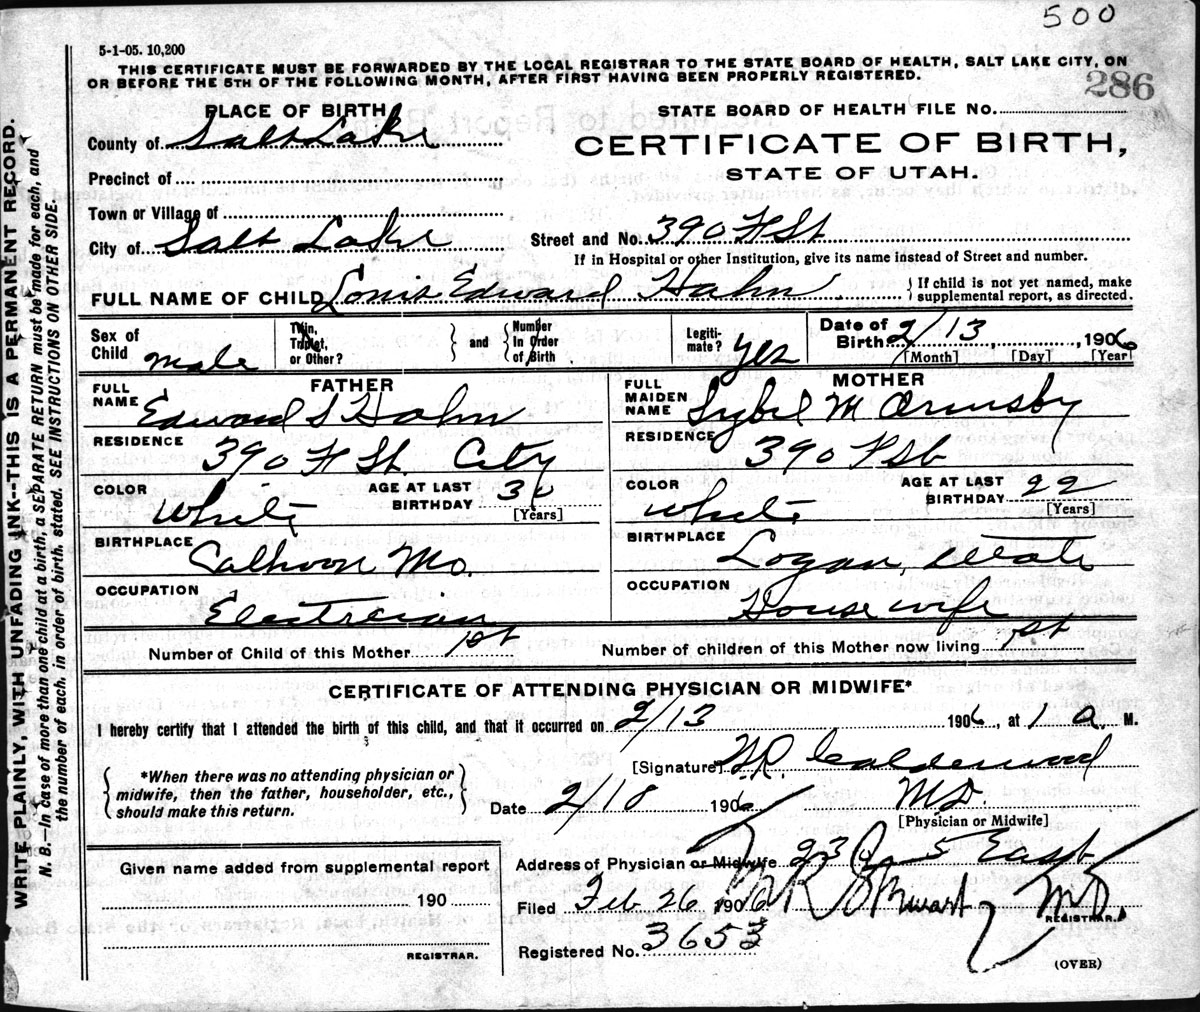 500
5-1-05. 10,200
THIS CERTIFICATE MUST BE FORWARDED BY THE LOCAL REGISTRAR TO THE STATE BOARD OF HEALTH, SALT LAKE CITY, ON
OR BEFORE THE 5TH OF THE FOLLOWING MONTH, AFTER FIRST HAVING BEEN PROPERLY REGISTERED.
286
PLACE OF BIRTH
STATE BOARD OF HEALTH FILE NO.
County of Salt Lake
CERTIFICATE OF BIRTH,
STATE OF UTAH.
Precinct of
Town or Village of
City of Salt Lake
Street and No. 390 H St
If in Hospital or other Institution, give its name instead of Street and number.
FULL NAME OF CHILD Louis Edward Hahn
If child is not yet named, make
supplemental report, as directed.
Sex of
Child male
Twin,
Triplet,
or Other?
and
Number
In Order
of Birth
Legiti-
mate? yes
Date of
Birth 2/13, 1906
[Month] [Day] [Year]
FATHER
FULL
NAME Edward S Hahn
RESIDENCE
390 H St. City
COLOR
White
AGE AT LAST
BIRTHDAY 30
[Years]
BIRTHPLACE
Calhoon Mo.
OCCUPATION
Electrician
MOTHER
FULL
MAIDEN
NAME Sybil M Ormsby
RESIDENCE
390 St
COLOR
White
AGE AT LAST
BIRTHDAY 22
[Years]
BIRTHPLACE
Logan, Utah
OCCUPATION
House wife
Number of Child of this Mother 1st
Number of children of this Mother now living 1st
CERTIFICATE OF ATTENDING PHYSICIAN OR MIDWIFE*
I hereby certify that I attended the birth of this child, and that it occurred on 2/13 1906, at 1 a M.
*When there was no attending physician or
midwife, then the father, householder, etc.,
should make this return.
[Signature] W.R. Calderwood
Date 2/18 1906 MD.
[Physician or Midwife]
Given name added from supplemental report
190
REGISTRAR.
Address of Physician or Midwife 23 5 East
Filed Feb 26 1906 Stewart MD
REGISTRAR.
Registered No. 3653
(OVER)
WRITE PLAINLY, WITH UNFADING INK--THIS IS A PERMANENT RECORD.
N. B.—In case of more than one child at a birth, a SEPARATE RETURN must be made for each, and
the number of each, in order of birth, stated. SEE INSTRUCTIONS ON OTHER SIDE.